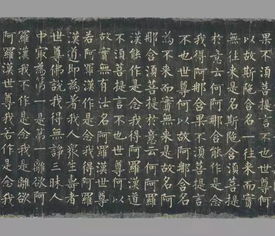 果不須菩提言不也世尊何
以故斯陀含名一往來而實
無往來是名斯陀含須菩提
於意云何阿那含能作是念
我得阿那含果不須菩提言
不也世尊何以故阿那含名
為不來而實無來是故名阿
那含須菩提於意云何阿羅
漢能作是念我得阿羅漢道
不須菩提言不也世尊何以
故實無有法名阿羅漢世尊
若阿羅漢作是念我得阿羅
漢道即為著我人眾生壽者
世尊佛說我得無諍三昧人
中最為第一是第一離欲阿
羅漢我不作是念我是離欲
阿羅漢世尊我若作是念我